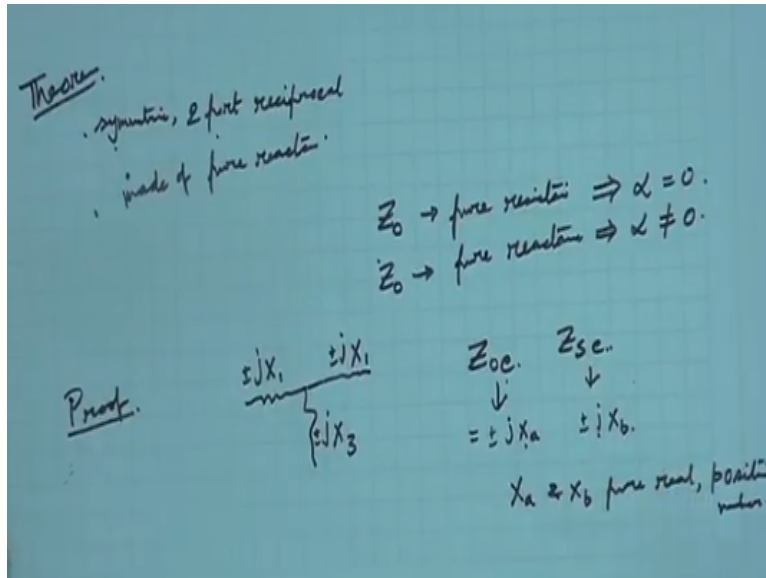 Theore.
. symmetric, 2 port reciprocal
. made of pure reactan.
Z₀ → pure resistan ⇒ α = 0.
Z₀ → pure reactanc ⇒ α ≠ 0.
Proof.
±jX₁ ±jX₁
±jX₃
Zoc. Zsc..
↓ ↓
= ±jXa ±jXb.
Xa & Xb pure real, positi
number